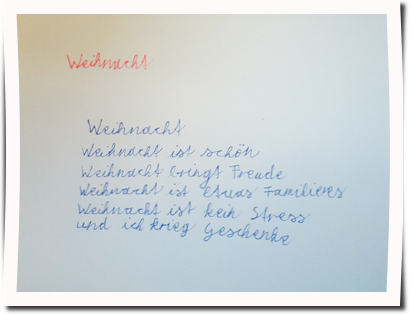 Weihnacht
Weihnacht
Weihnacht ist schön
Weihnacht bringt Freude
Weihnacht ist etwas Familieres
Weihnacht ist kein Stress
und ich krieg Geschenke